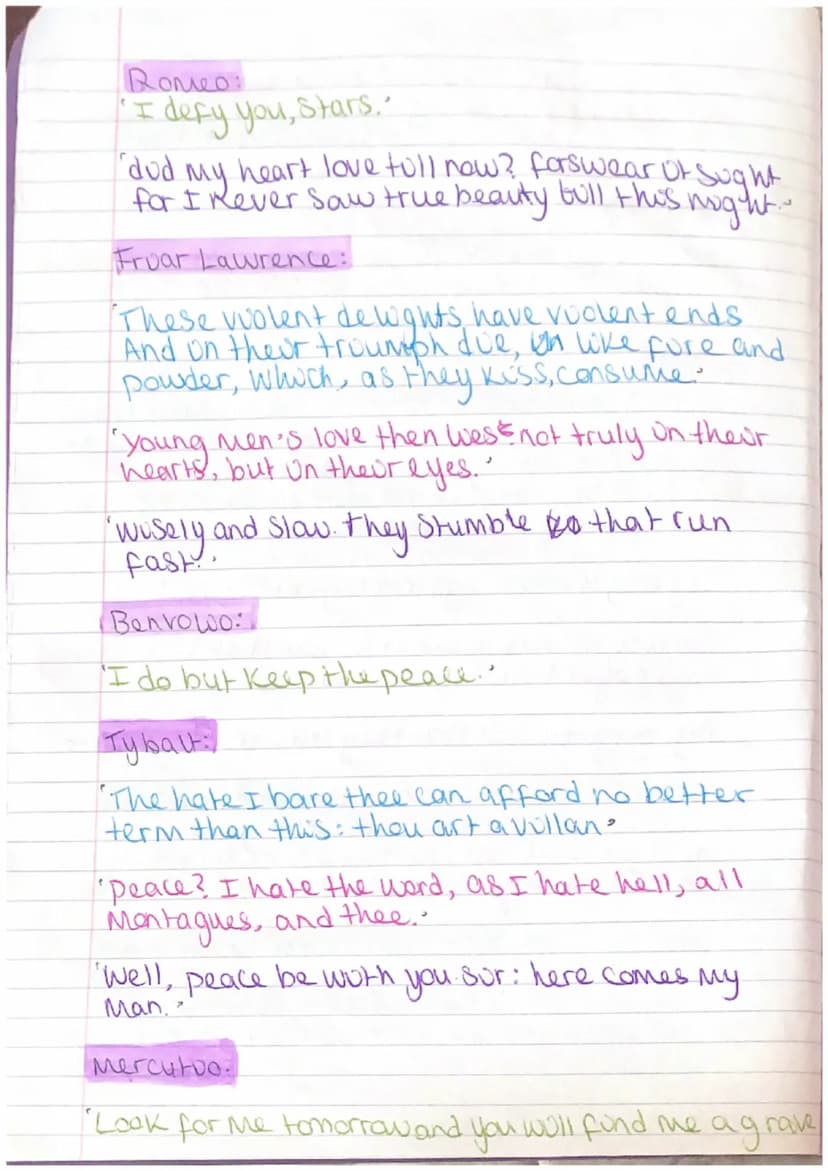 Romeo:
'I defy you, stars.'
'did my heart love till now? forswear it sight
for I never saw true beauty till this night.'
Friar Lawrence:
'These violent delights have violent ends
And in their trouimph die, in like fire and
powder, which, as they kiss, consume.'
'young men's love then lies not truly in their
hearts, but in their eyes.'
'wisely and slow. they stumble that run
fast.'
Benvolio:
'I do but keep the peace.'
Tybalt:
'The hate I bare thee can afford no better
term than this: thou art a villan'
'peace? I hate the word, as I hate hell, all
Montagues, and thee.'
'Well, peace be with you sir: here comes my
man.'
Mercutio:
'Look for me tomorrow and you will find me a grave